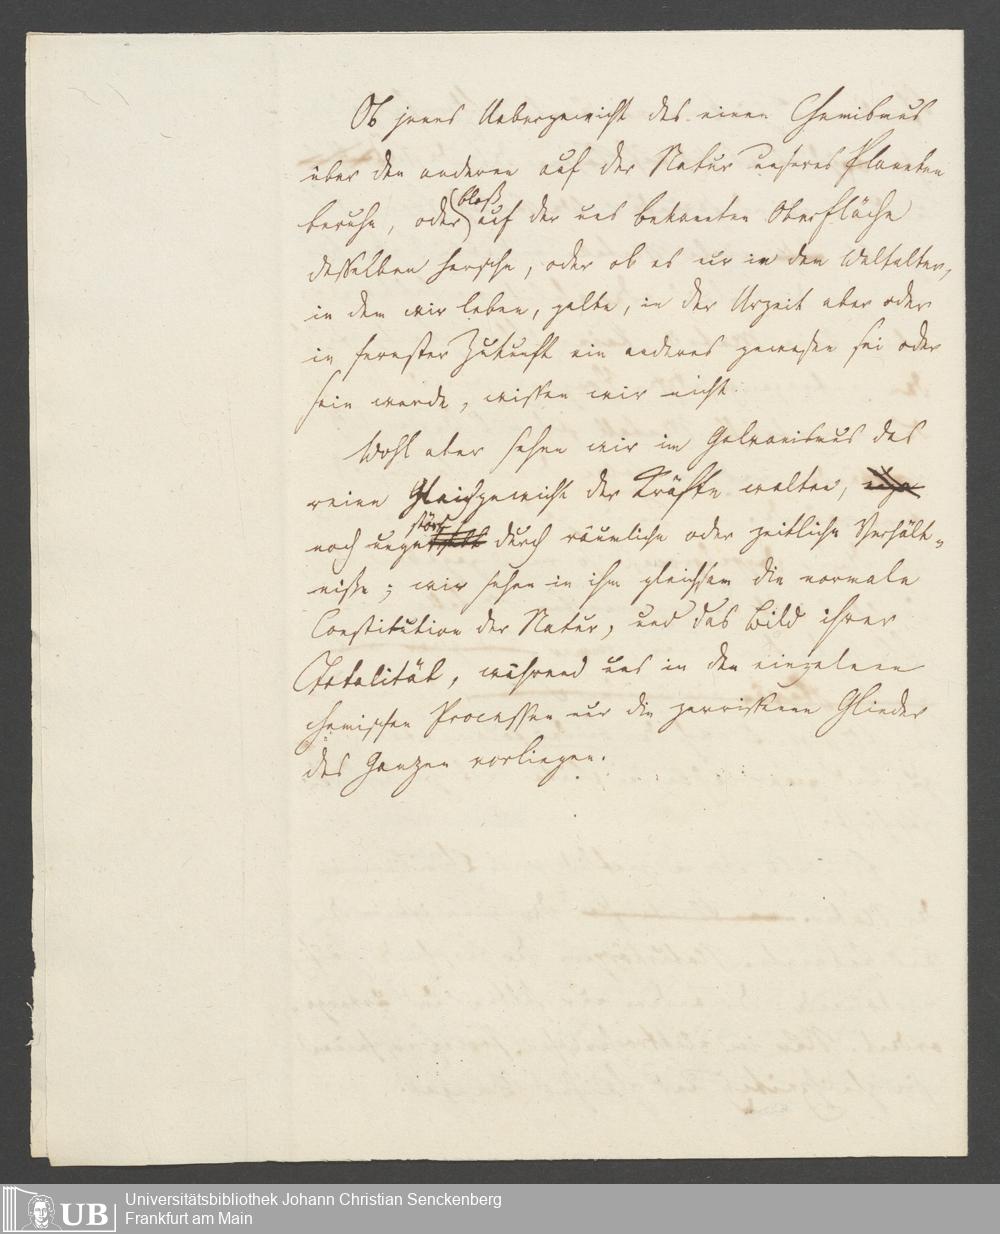 Ob jenes Uebergewicht des einen Chemismus
über den anderen auf der Natur unseres Planeten
beruhe, oder bloß auf der uns bekannten Oberfläche
desselben hersche, oder ob es nur in den Weltalter,
in dem wir leben, gelte, in der Urzeit aber oder
in fernster Zukunft ein anderes gewesen sei oder
sein werde, wissen wir nicht.
Wohl aber sehen wir im Galvanismus das
reine Gleichgewicht der Kräfte walten,
noch ungestört durch räumliche oder zeitliche Verhält=
nisse; wir sehen in ihm gleichsam die normale
Constitution der Natur, und das Bild ihrer
Totalität, während uns in den einzelnen
chemischen Processen nur die zerrissenen Glieder
des Ganzen vorliegen.
UB
Universitätsbibliothek Johann Christian Senckenberg
Frankfurt am Main